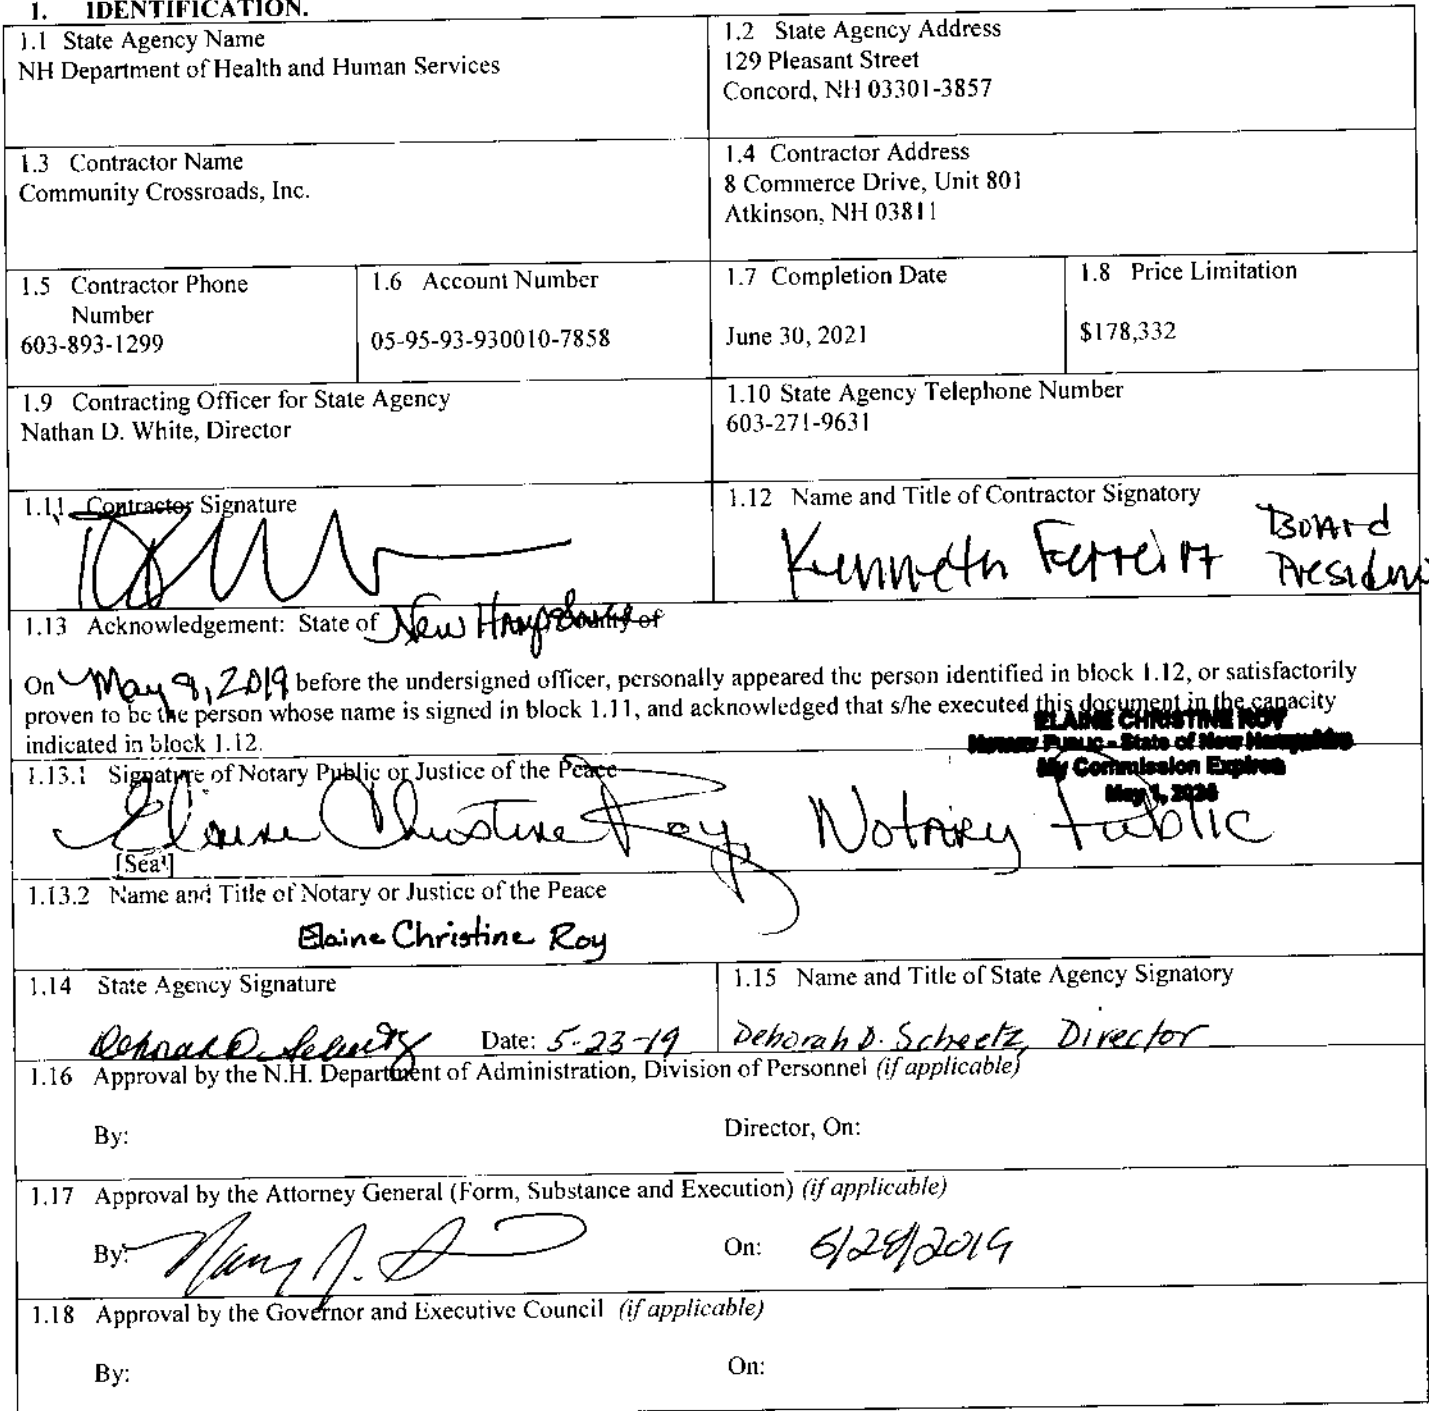 1. IDENTIFICATION.
1.1 State Agency Name
NH Department of Health and Human Services
1.2 State Agency Address
129 Pleasant Street
Concord, NH 03301-3857
1.3 Contractor Name
Community Crossroads, Inc.
1.4 Contractor Address
8 Commerce Drive, Unit 801
Atkinson, NH 03811
1.5 Contractor Phone
Number
603-893-1299
1.6 Account Number
05-95-93-930010-7858
1.7 Completion Date
June 30, 2021
1.8 Price Limitation
$178,332
1.9 Contracting Officer for State Agency
Nathan D. White, Director
1.10 State Agency Telephone Number
603-271-9631
1.11 Contractor Signature
1.12 Name and Title of Contractor Signatory
Kenneth Ferreira Board
President
1.13 Acknowledgement: State of New Hampshire County of
On May 8, 2019 before the undersigned officer, personally appeared the person identified in block 1.12, or satisfactorily
proven to be the person whose name is signed in block 1.11, and acknowledged that s/he executed this document in the capacity
indicated in block 1.12.
ELAINE CHRISTINE ROY
Notary Public - State of New Hampshire
My Commission Expires
May 1,
1.13.1 Signature of Notary Public or Justice of the Peace
Elaine Christine Roy, Notary Public
[Seal]
1.13.2 Name and Title of Notary or Justice of the Peace
Elaine Christine Roy
1.14 State Agency Signature
Deborah D. Scheetz Date: 5-23-19
1.15 Name and Title of State Agency Signatory
Deborah D. Scheetz, Director
1.16 Approval by the N.H. Department of Administration, Division of Personnel (if applicable)
By: Director, On:
1.17 Approval by the Attorney General (Form, Substance and Execution) (if applicable)
By: Nancy J. On: 5/29/2019
1.18 Approval by the Governor and Executive Council (if applicable)
By: On: